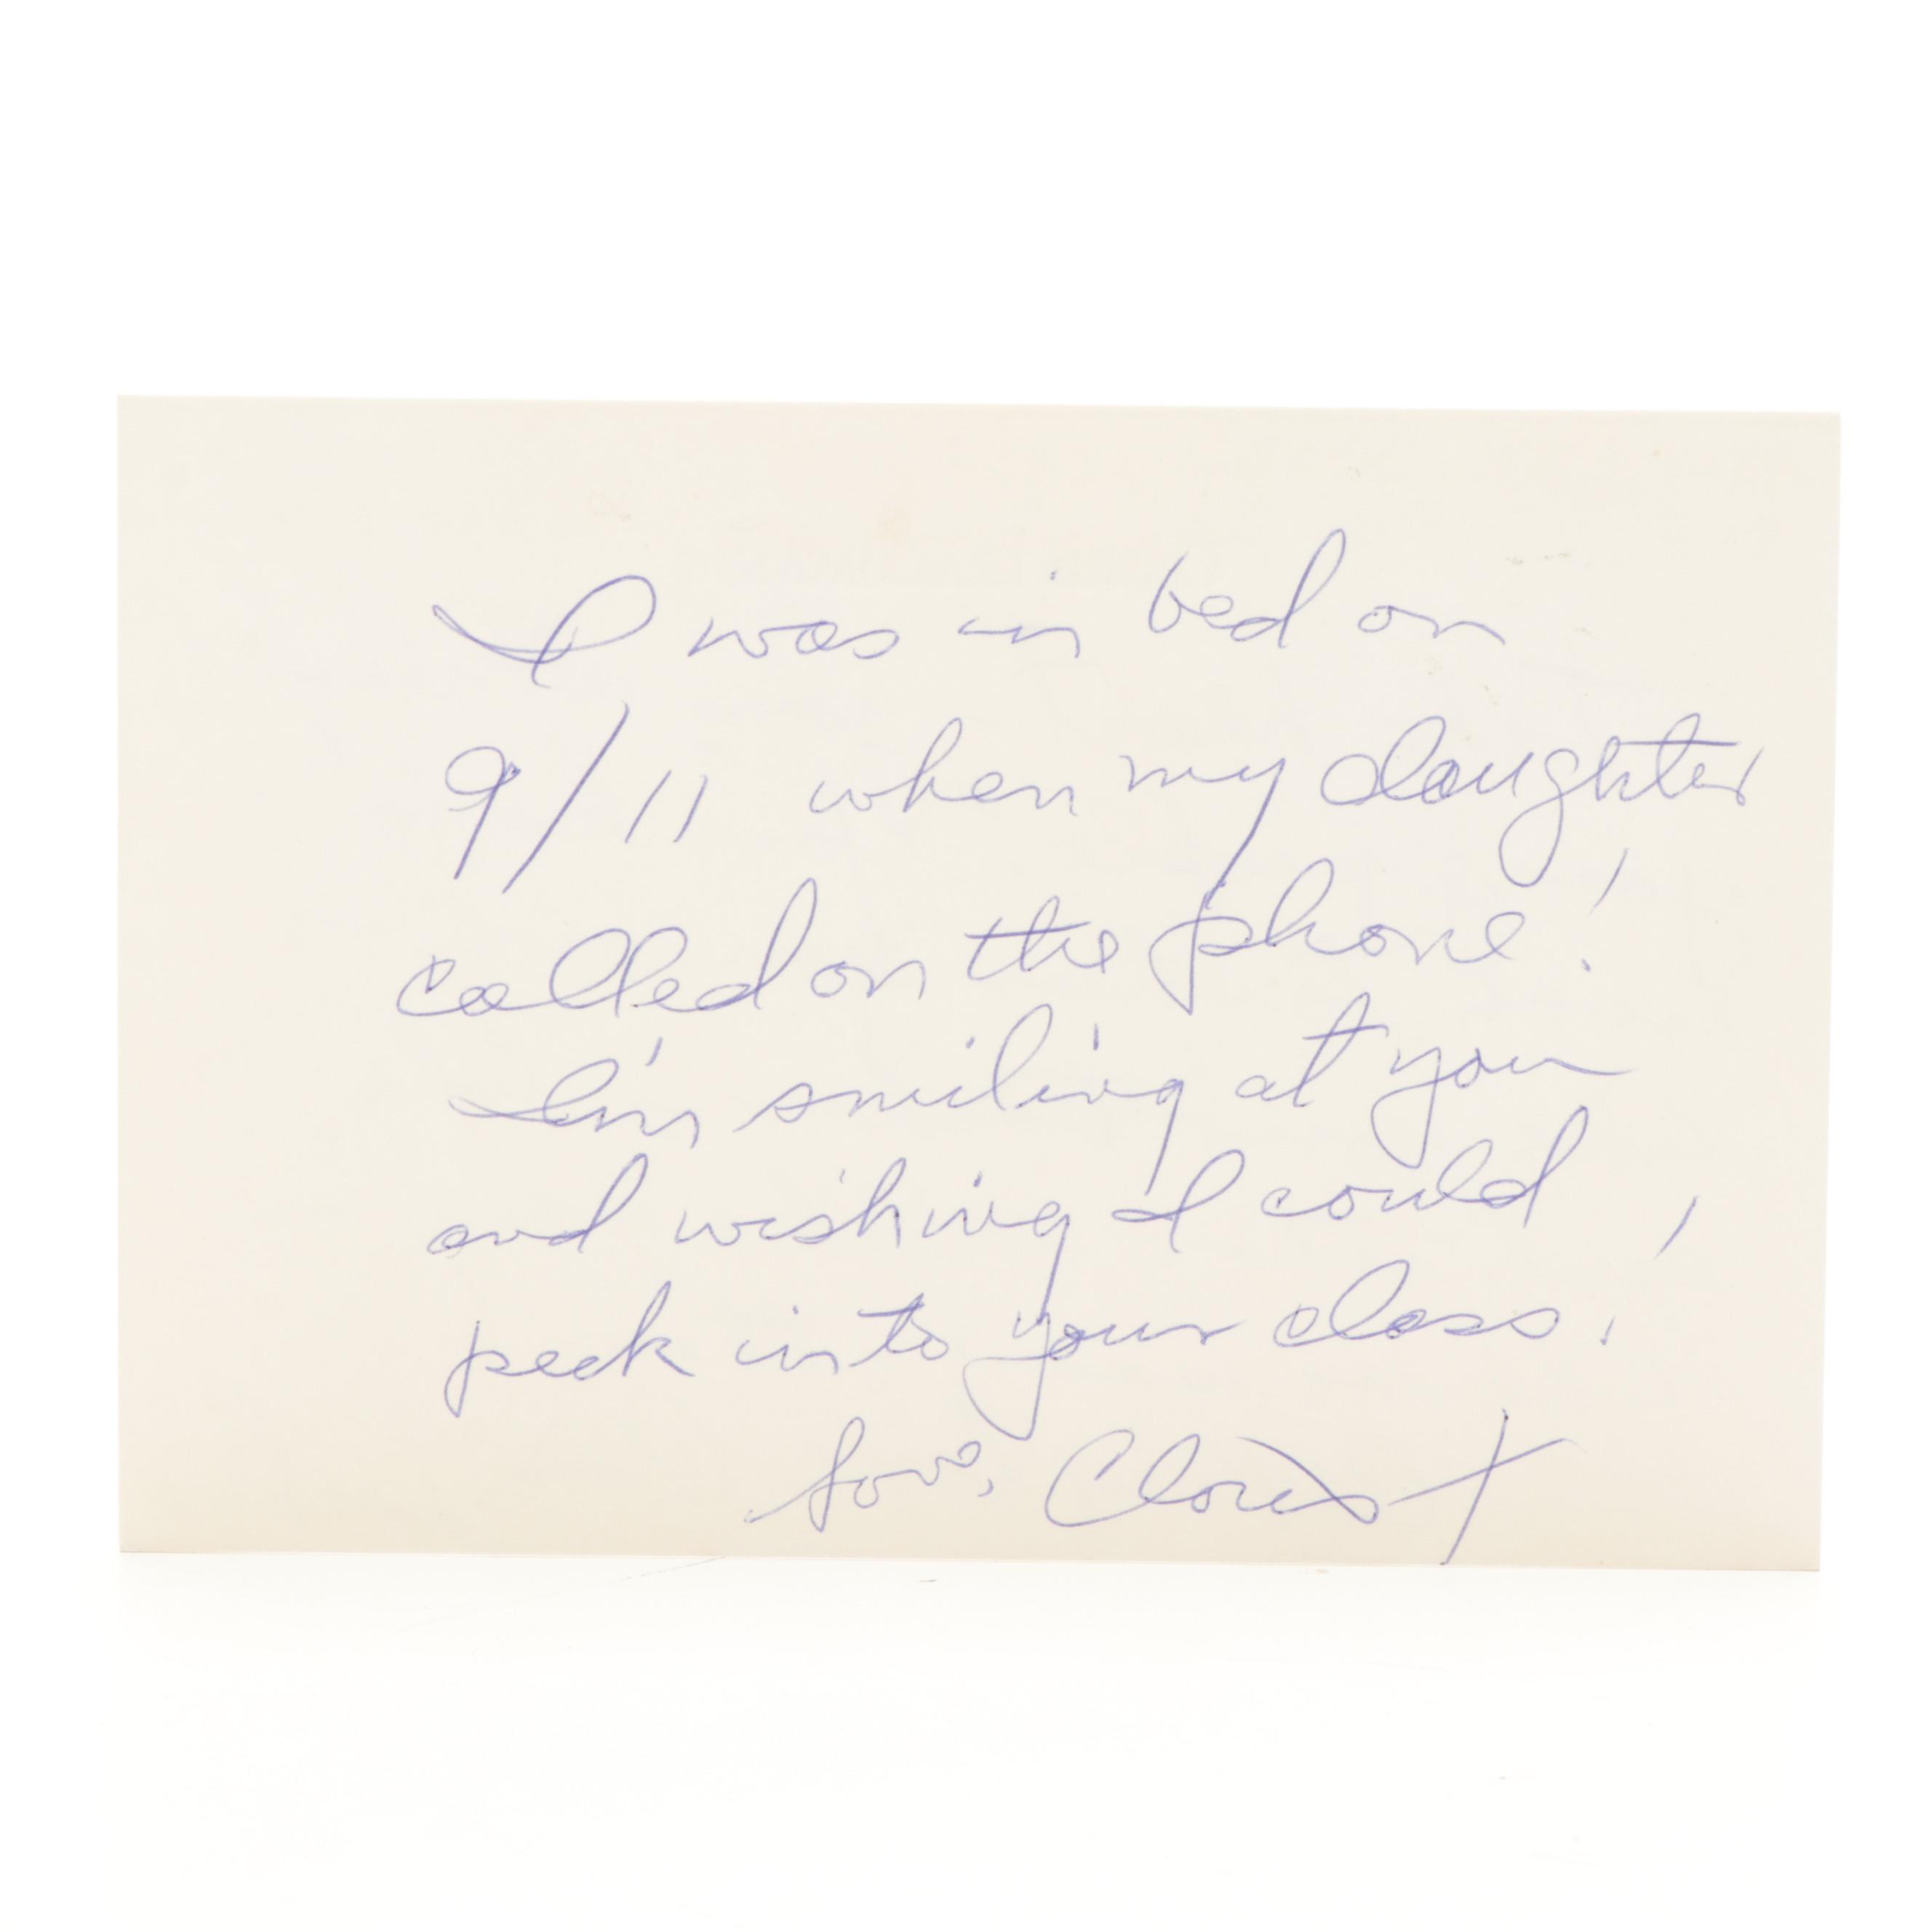 I was in bed on
9/11 when my daughter
called on the phone!
I'm smiling at you
and wishing I could
peek into your class!
Love, Cloris